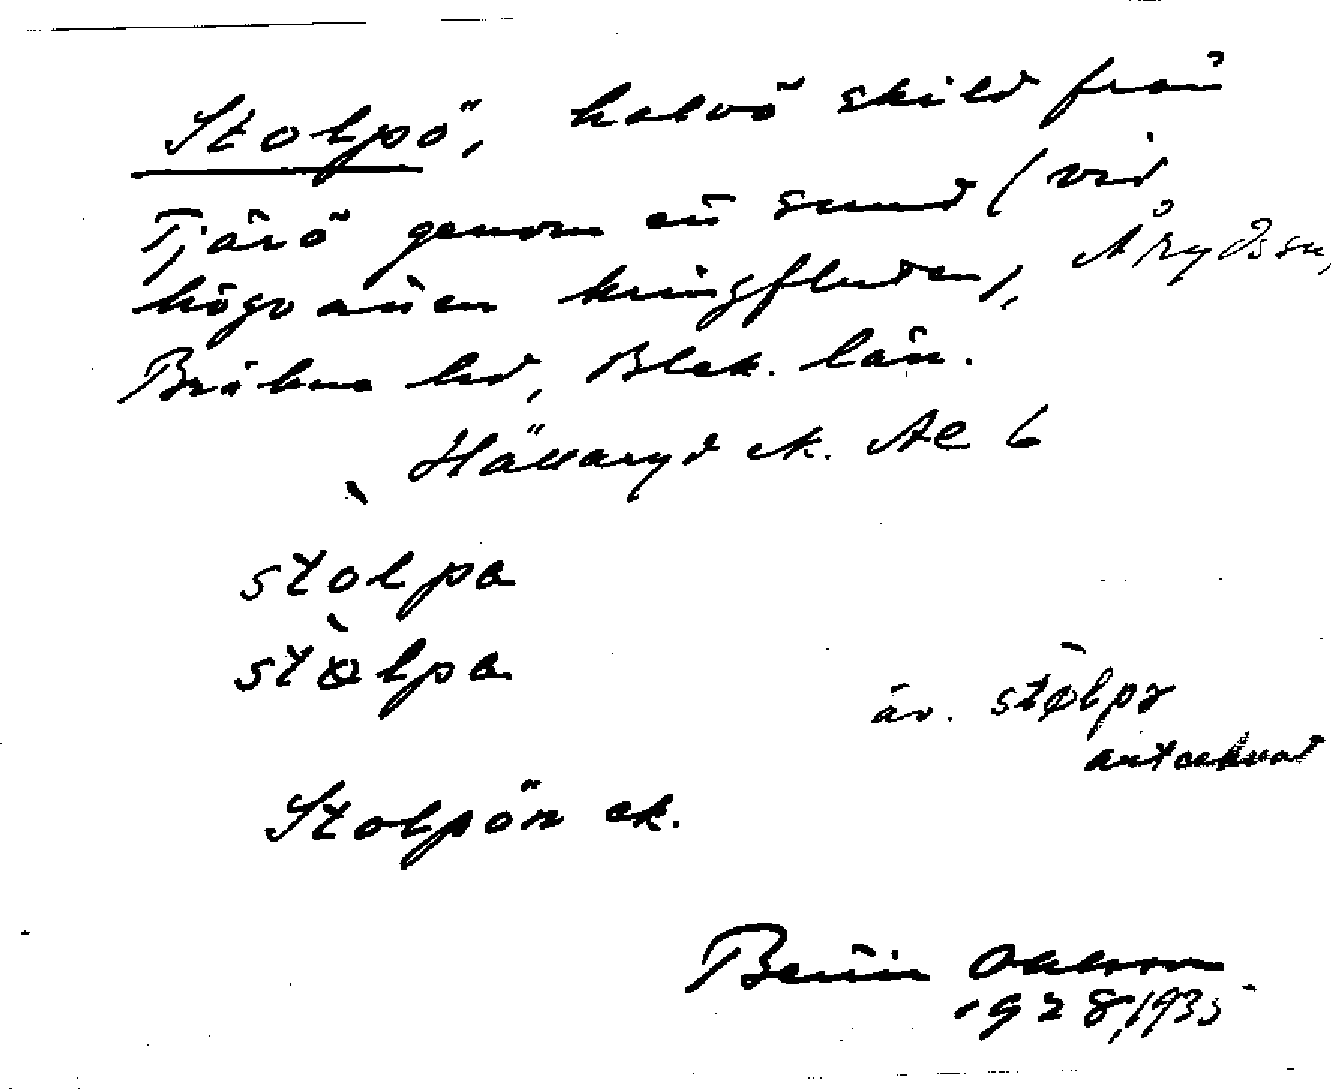 Stolpö, halvö skild från
Tjärö genom ett sund (vid
högvatten kringfluten), Åryds sn,
Bräkne hd, Blek. län.
Hällaryd ek. AE 6
stolpa
stolpa
äv. stølpə
antecknat
Stolpön ek.
Bertil Ohlsson
1928, 1935